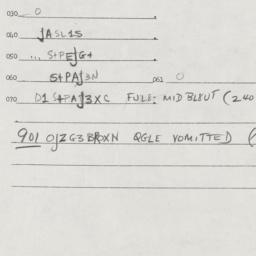 030 O
040 JASL15
050 ... S+PEJG+
060 S+PAJ3N 061 O
070 D1 S+PAJ3XC FULE: MID BLEUT (240
901 OJZG3BRXN QGLE VOMITTED (